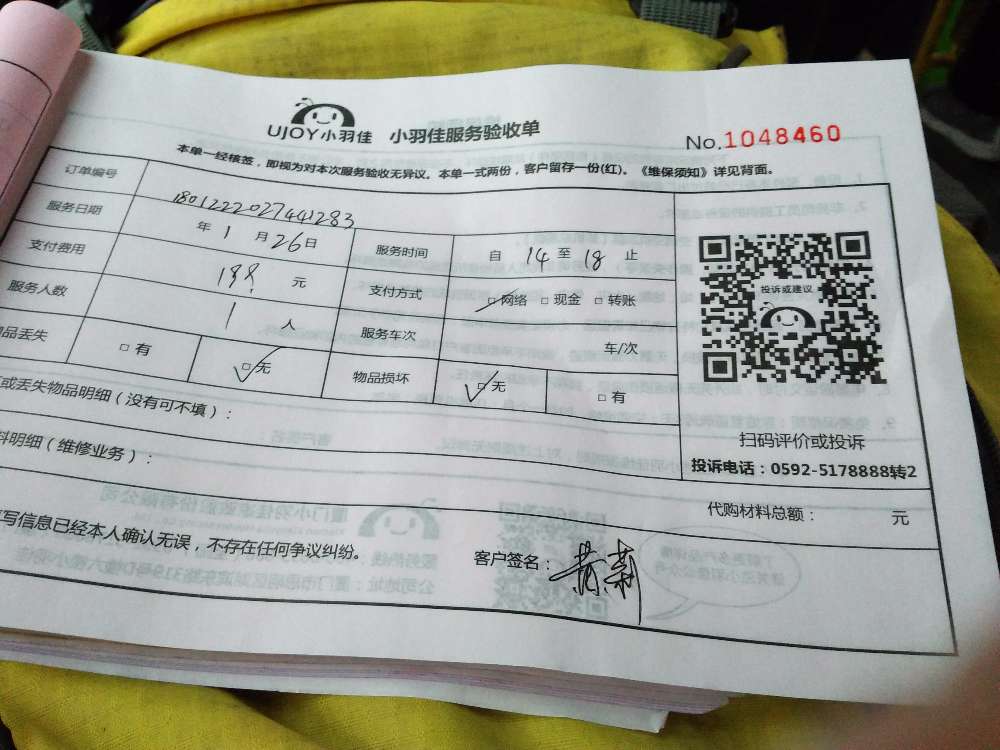 UJOY小羽佳 小羽佳服务验收单
No.1048460
本单一经核签，即视为对本次服务验收无异议。本单一式两份，客户留存一份(红)。《维保须知》详见背面。
订单编号 180122202744​1283
服务日期 年 1 月 26 日 服务时间 自 14 至 18 止
支付费用 198 元 支付方式 □网络 □现金 □转账
服务人数 1 人 服务车次 车/次
品丢失 □有 □无 物品损坏 □无 □有
或丢失物品明细（没有可不填）：
料明细（维修业务）：
投诉或建议
扫码评价或投诉
投诉电话：0592-5178888转2
代购材料总额： 元
写信息已经本人确认无误，不存在任何争议纠纷。
客户签名：